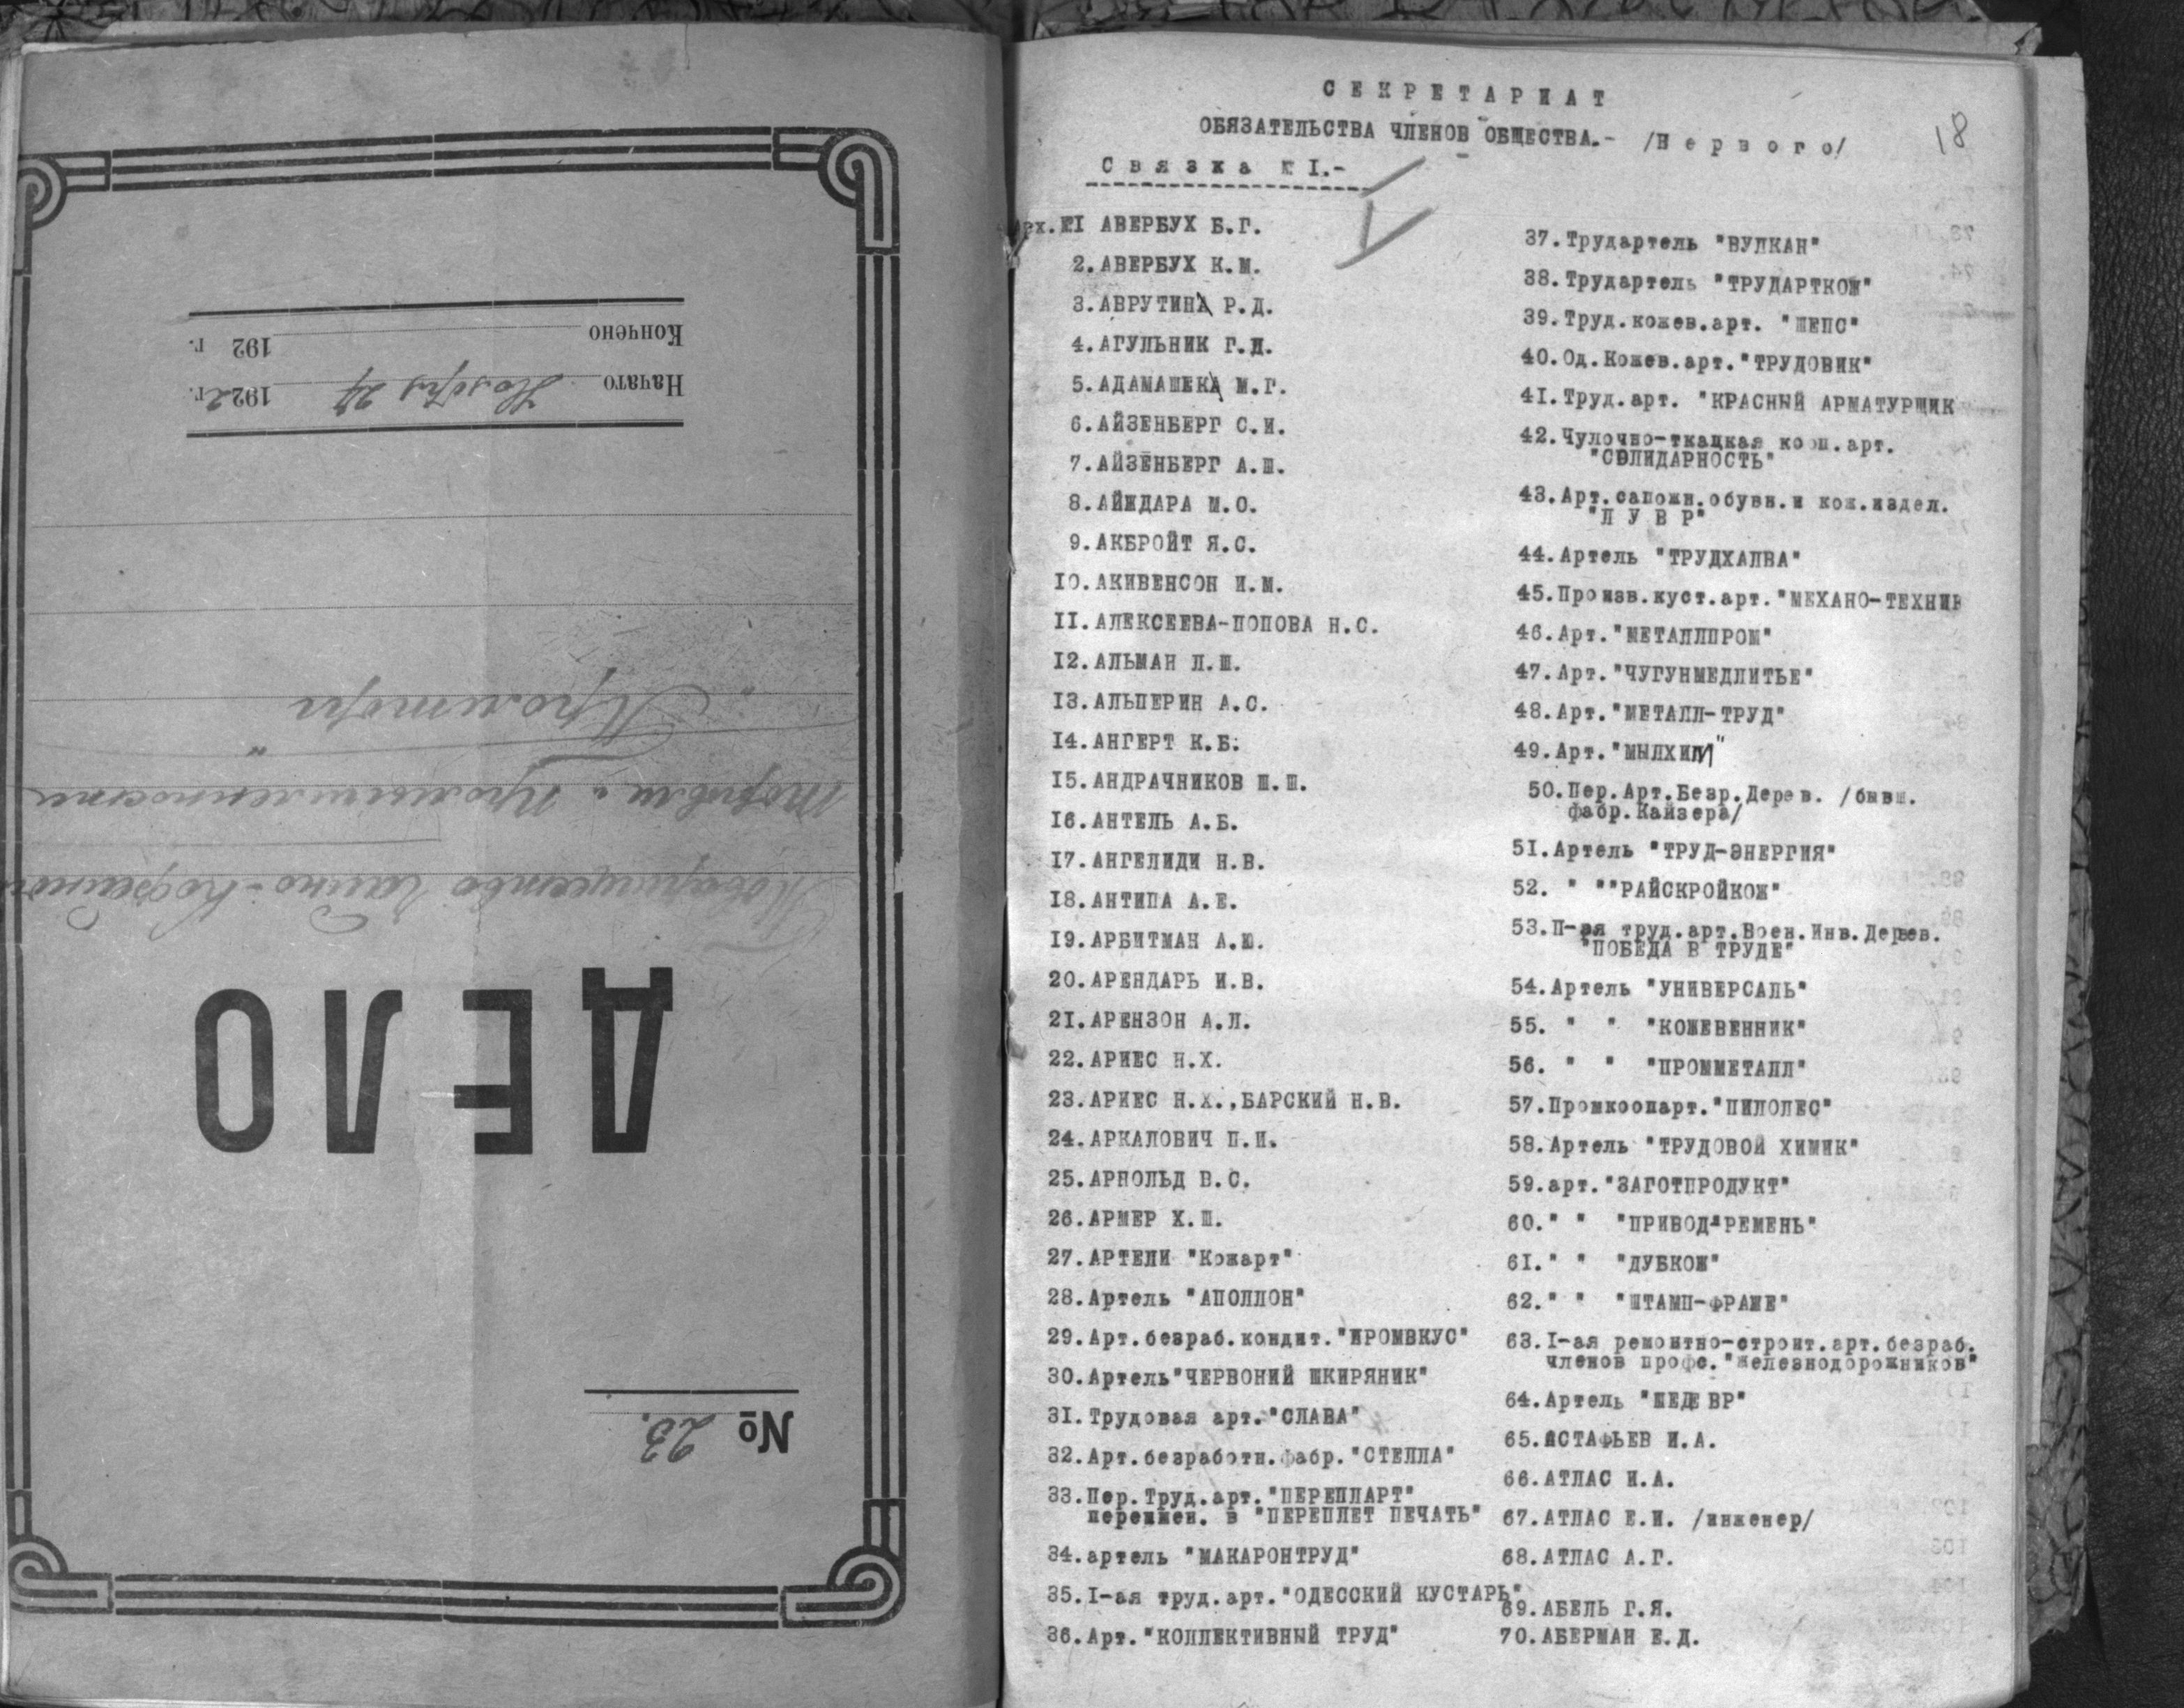 № 23.
ДЕЛО
Товарищество Чайно-Кофейной
торговли и промышленности
"Промторг"
Начато Ноября 27 1922 г.
Кончено 192 г.
СЕКРЕТАРИАТ
ОБЯЗАТЕЛЬСТВА ЧЛЕНОВ ОБЩЕСТВА.- /Первого/
18
Связка №1.-
Арх.№I АВЕРБУХ Б.Г.
2.АВЕРБУХ К.М.
3.АВРУТИНА Р.Д.
4.АГУЛЬНИК Г.Д.
5.АДАМАШЕКА М.Г.
6.АЙЗЕНБЕРГ С.И.
7.АЙЗЕНБЕРГ А.Ш.
8.АЙЖДАРА М.О.
9.АКБРОЙТ Я.С.
I0.АКИВЕНСОН И.М.
II.АЛЕКСЕЕВА-ПОПОВА Н.С.
I2.АЛЬМАН Л.Ш.
I3.АЛЬПЕРИН А.С.
I4.АНГЕРТ К.Б.
I5.АНДРАЧНИКОВ Ш.Ш.
I6.АНТЕЛЬ А.Б.
I7.АНГЕЛИДИ Н.В.
I8.АНТИПА А.Е.
I9.АРБИТМАН А.Ю.
20.АРЕНДАРЬ И.В.
2I.АРЕНЗОН А.Л.
22.АРИЕС Н.Х.
23.АРИЕС Н.Х.,БАРСКИЙ Н.В.
24.АРКАЛОВИЧ П.И.
25.АРНОЛЬД В.С.
26.АРМЕР Х.Ш.
27.АРТЕЛИ "Кожарт"
28.Артель "АПОЛЛОН"
29.Арт.безраб.кондит."ПРОМВКУС"
30.Артель"ЧЕРВОНИЙ ШКИРЯНИК"
3I.Трудовая арт."СЛАВА"
32.Арт.безработн.фабр."СТЕЛЛА"
33.Пер.Труд.арт."ПЕРЕПЛАРТ"
переимен. в "ПЕРЕПЛЕТ ПЕЧАТЬ"
34.артель "МАКАРОНТРУД"
35.I-ая труд.арт."ОДЕССКИЙ КУСТАРЬ"
36.Арт."КОЛЛЕКТИВНЫЙ ТРУД"
37.Трудартель "ВУЛКАН"
38.Трудартель "ТРУДАРТКОЖ"
39.Труд.кожев.арт. "ШЕПС"
40.Од.Кожев.арт."ТРУДОВИК"
4I.Труд.арт. "КРАСНЫЙ АРМАТУРЩИК
42.Чулочно-ткацкая кооп.арт.
"СОЛИДАРНОСТЬ"
43.Арт.сапожн.обувн.и кож.издел.
"Л У В Р"
44.Артель "ТРУДХАЛВА"
45.Произв.куст.арт."МЕХАНО-ТЕХНИК
46.Арт."МЕТАЛЛПРОМ"
47.Арт."ЧУГУНМЕДЛИТЬЕ"
48.Арт."МЕТАЛЛ-ТРУД"
49.Арт."МЫЛХИМ"
50.Пер.Арт.Безр.Дерев. /бывш.
фабр.Кайзера/
5I.Артель "ТРУД-ЭНЕРГИЯ"
52. " ""РАЙСКРОЙКОЖ"
53.П-ая труд.арт.Воен.Инв.Дерев.
"ПОБЕДА В ТРУДЕ"
54.Артель "УНИВЕРСАЛЬ"
55. " " "КОЖЕВЕННИК"
56. " " "ПРОММЕТАЛЛ"
57.Промкооцарт."ПИЛОЛЕС"
58.Артель "ТРУДОВОЙ ХИМИК"
59.арт."ЗАГОТПРОДУКТ"
60." " "ПРИВОД-РЕМЕНЬ"
6I." " "ДУБКОЖ"
62." " "ШТАМП-ФРАЖЕ"
63.I-ая ремонтно-строит.арт.безраб.
членов профс."железнодорожников"
64.Артель "ШЕДЕВР"
65.АСТАФЬЕВ И.А.
66.АТЛАС И.А.
67.АТЛАС Е.И. /инженер/
68.АТЛАС А.Г.
69.АБЕЛЬ Г.Я.
70.АБЕРМАН Е.Д.